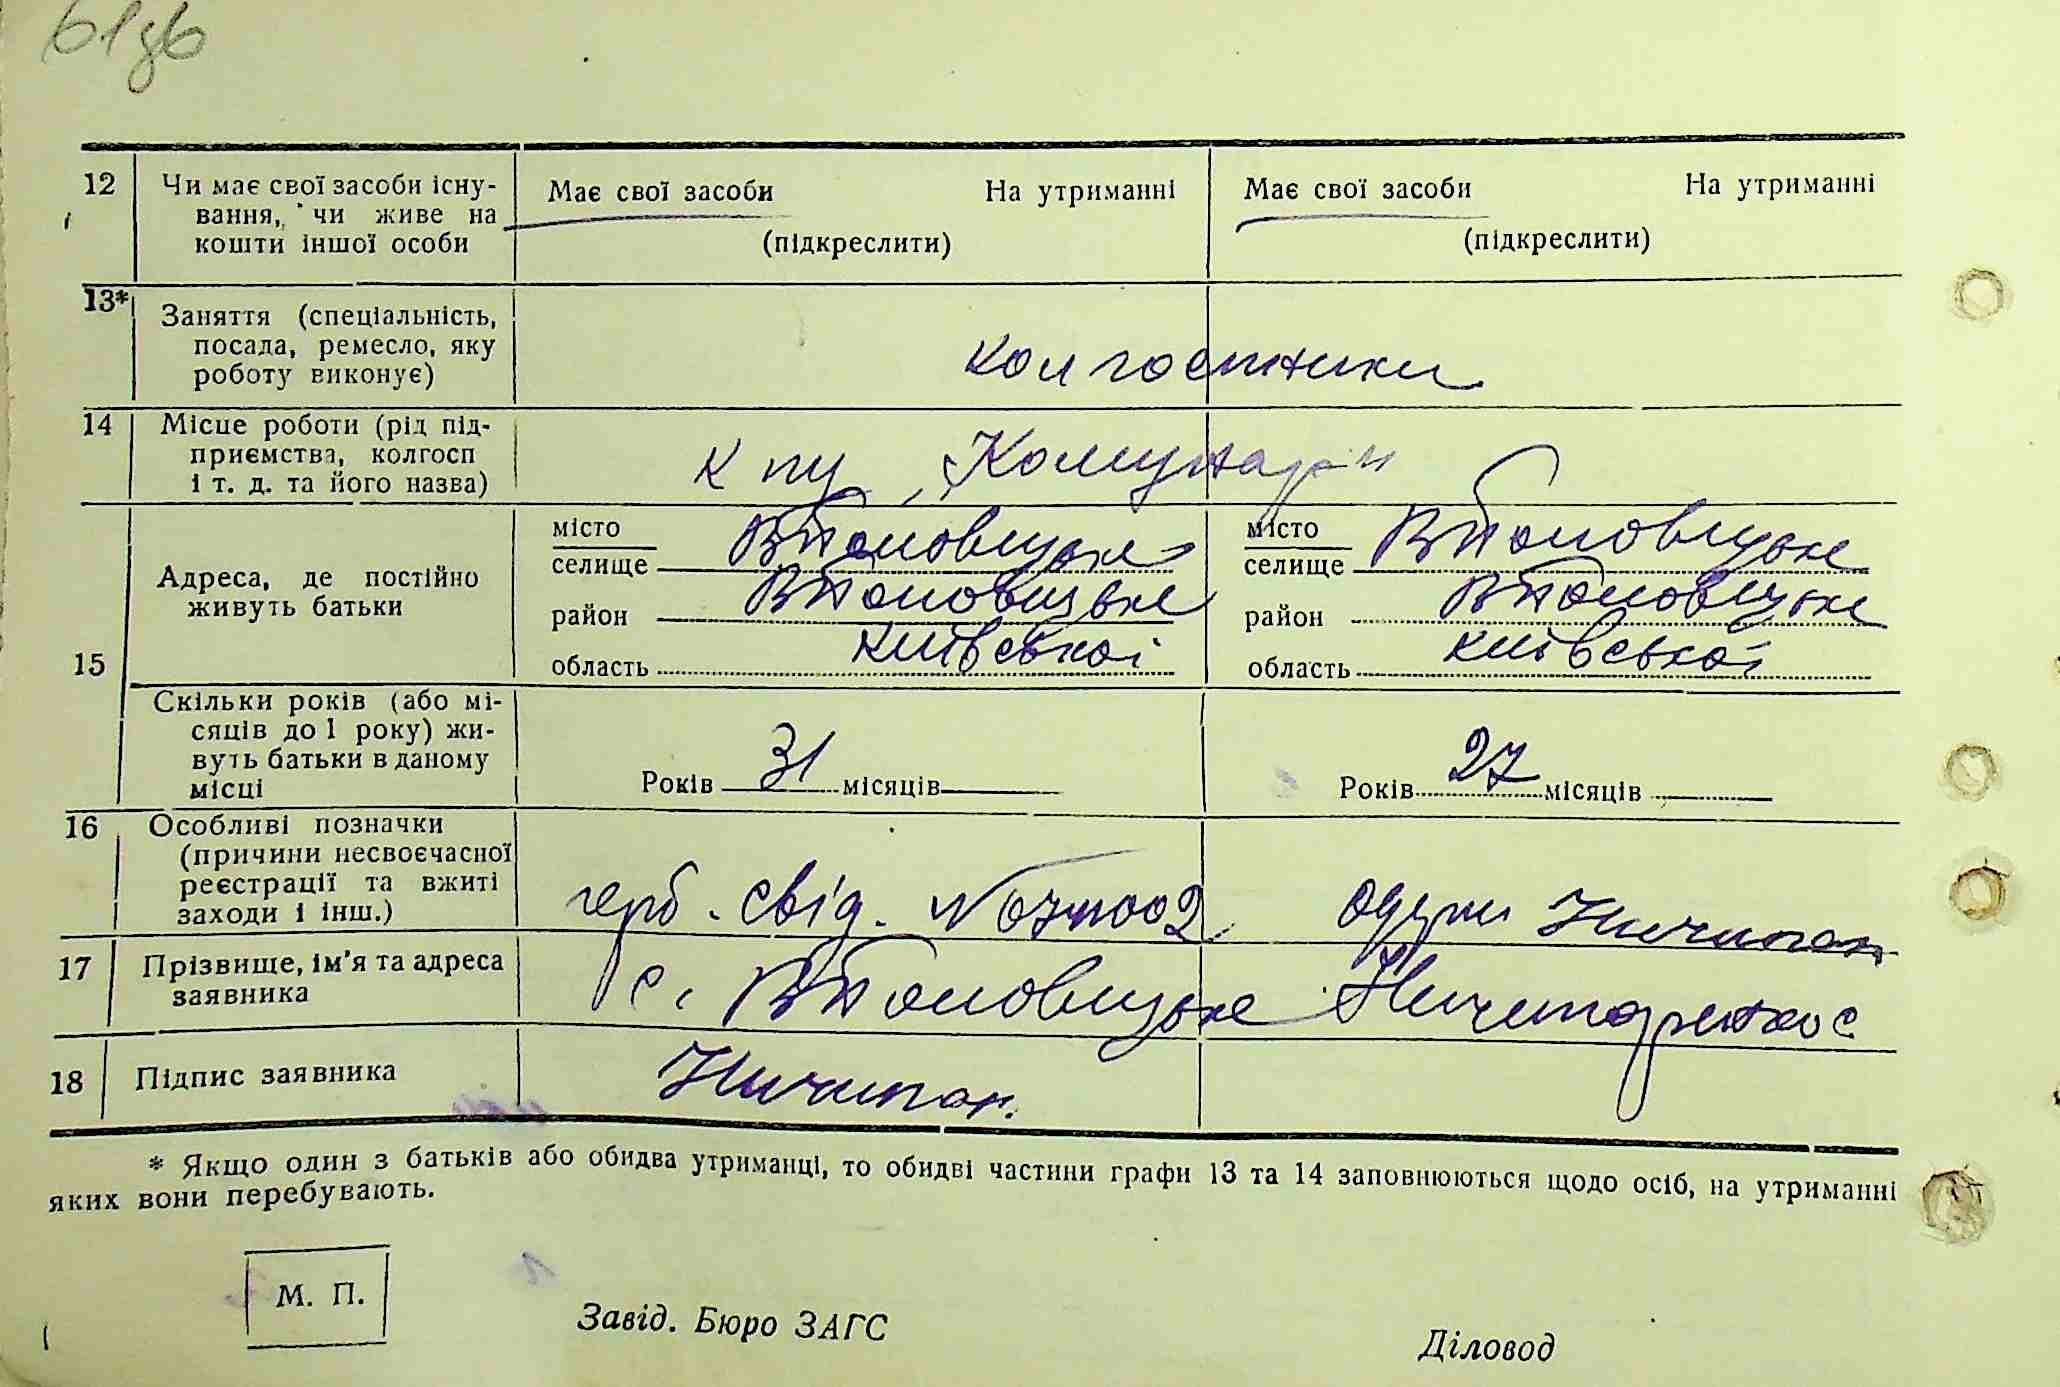 61зв
12 Чи має свої засоби існу-
вання, чи живе на
кошти іншої особи
Має свої засоби На утриманні
(підкреслити)
Має свої засоби На утриманні
(підкреслити)
13* Заняття (спеціальність,
посада, ремесло, яку
роботу виконує)
колгоспники
14 Місце роботи (рід під-
приємства, колгосп
і т. д. та його назва)
К пу „Комунар"
15 Адреса, де постійно
живуть батьки
місто
селище
район
область Київської
місто
селище
район
область Київської
Скільки років (або мі-
сяців до 1 року) жи-
вуть батьки в даному
місці
Років 31 місяців
Років 27 місяців
16 Особливі позначки
(причини несвоєчасної
реєстрації та вжиті
заходи і інш.)
герб. свід. №
17 Прізвище, ім'я та адреса
заявника
с.
18 Підпис заявника
Ничипор.
* Якщо один з батьків або обидва утриманці, то обидві частини графи 13 та 14 заповнюються щодо осіб, на утриманні
яких вони перебувають.
М. П.
Завід. Бюро ЗАГС
Діловод